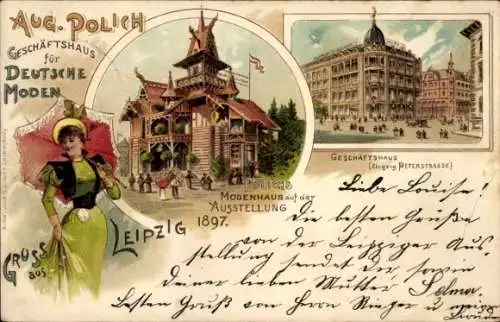 AUG. POLICH
GESCHÄFTSHAUS
für
DEUTSCHE
MODEN
GESCHÄFTSHAUS
(Eingang PETERSTRASSE)
POLICHS
MODENHAUS auf der
AUSSTELLUNG
1897.
GRUSS
aus
LEIPZIG
Liebe Louise!
Die besten Grüße
von der Leipziger Aus
stellung sendet dir, sowie
deiner lieben Mutter Selma.
Besten Gruß von Herrn Rieger u